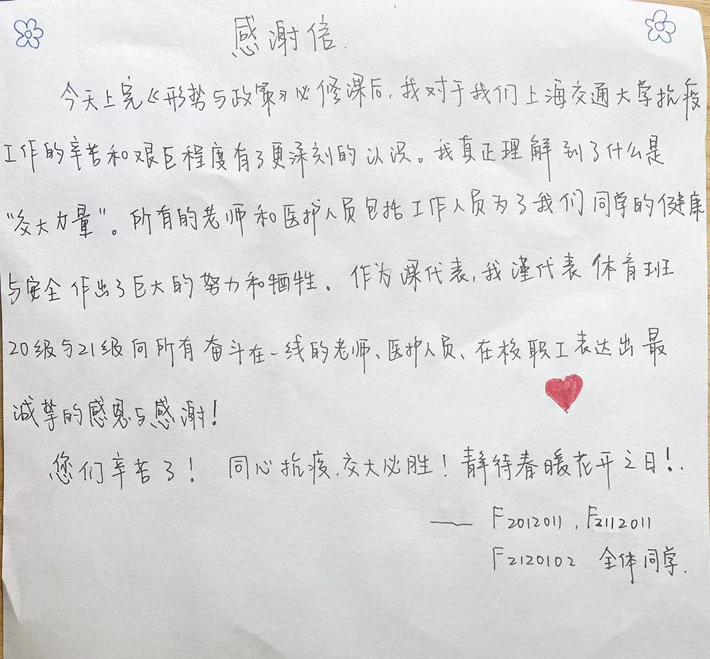 感谢信.
今天上完《形势与政策》必修课后,我对于我们上海交通大学抗疫
工作的辛苦和艰巨程度有了更深刻的认识。我真正理解到了什么是
“交大力量”。所有的老师和医护人员包括工作人员为了我们同学的健康
与安全作出了巨大的努力和牺牲。作为课代表,我谨代表体育班
20级与21级向所有奋斗在一线的老师、医护人员、在校职工表达出最
诚挚的感恩与感谢!
您们辛苦了!同心抗疫,交大必胜!静待春暖花开之日!.
—— F2012011,F2112011
F2120102 全体同学.